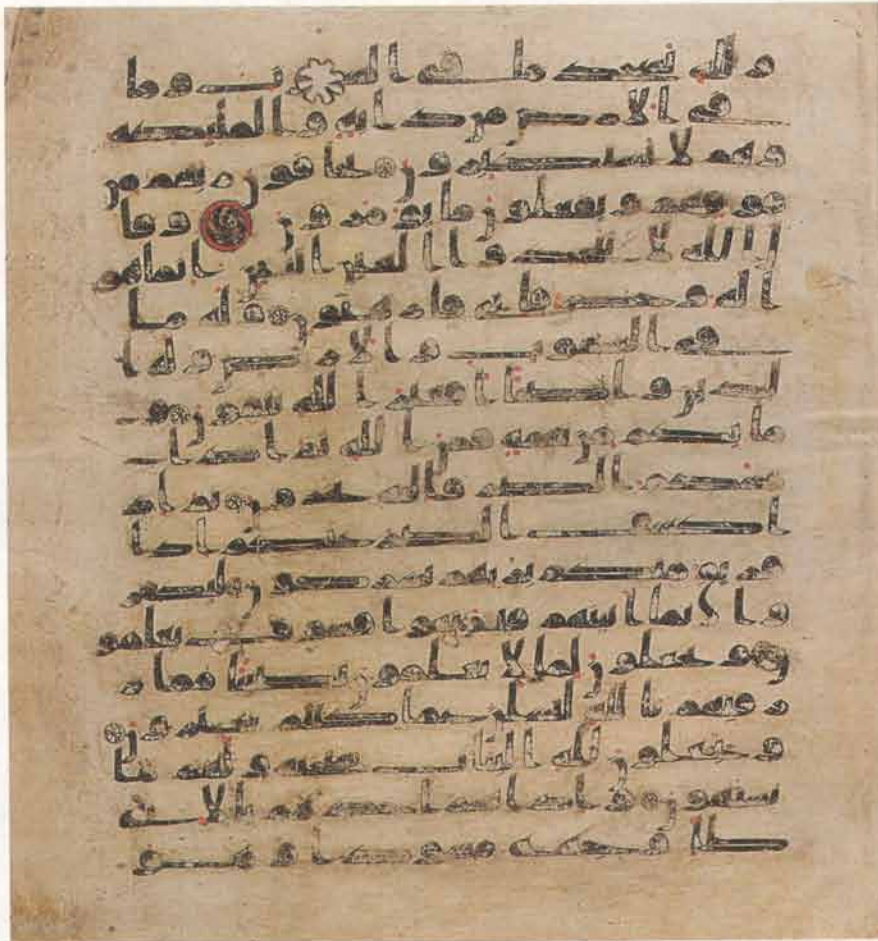 ولله يسجد ما في السموت وما
في الارض من دابة والملئكة
وهم لا يستكبرون يخافون ربهم من
فوقهم ويفعلون ما يومرون وقا
ل الله لا تتخذوا الهين اثنين انما هو
اله وحد فايى فارهبون وله ما
في السموت والارض وله ا
لدين واصبا افغير الله تتقون و
ما بكم من نعمة فمن الله ثم اذا
مسكم الضر فاليه تجرون ثم اذ
ا كشف الضر عنكم اذا
فريق منكم بربهم يشركون ليكفر
وا بما اتينهم فتمتعوا فسوف تعلمو
ن ويجعلون لما لا يعلمون نصيبا مما ر
زقنهم تالله لتسلن عما كنتم تفترون
ويجعلون لله البنت سبحنه ولهم ما
يشتهون واذا بشر احدهم بالانثى
ظل وجهه مسودا وهو